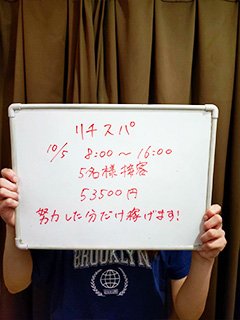 リチスパ
10/5 8:00～16:00
5名様接客
53500円
努力した分だけ稼げます!
BROOKLYN